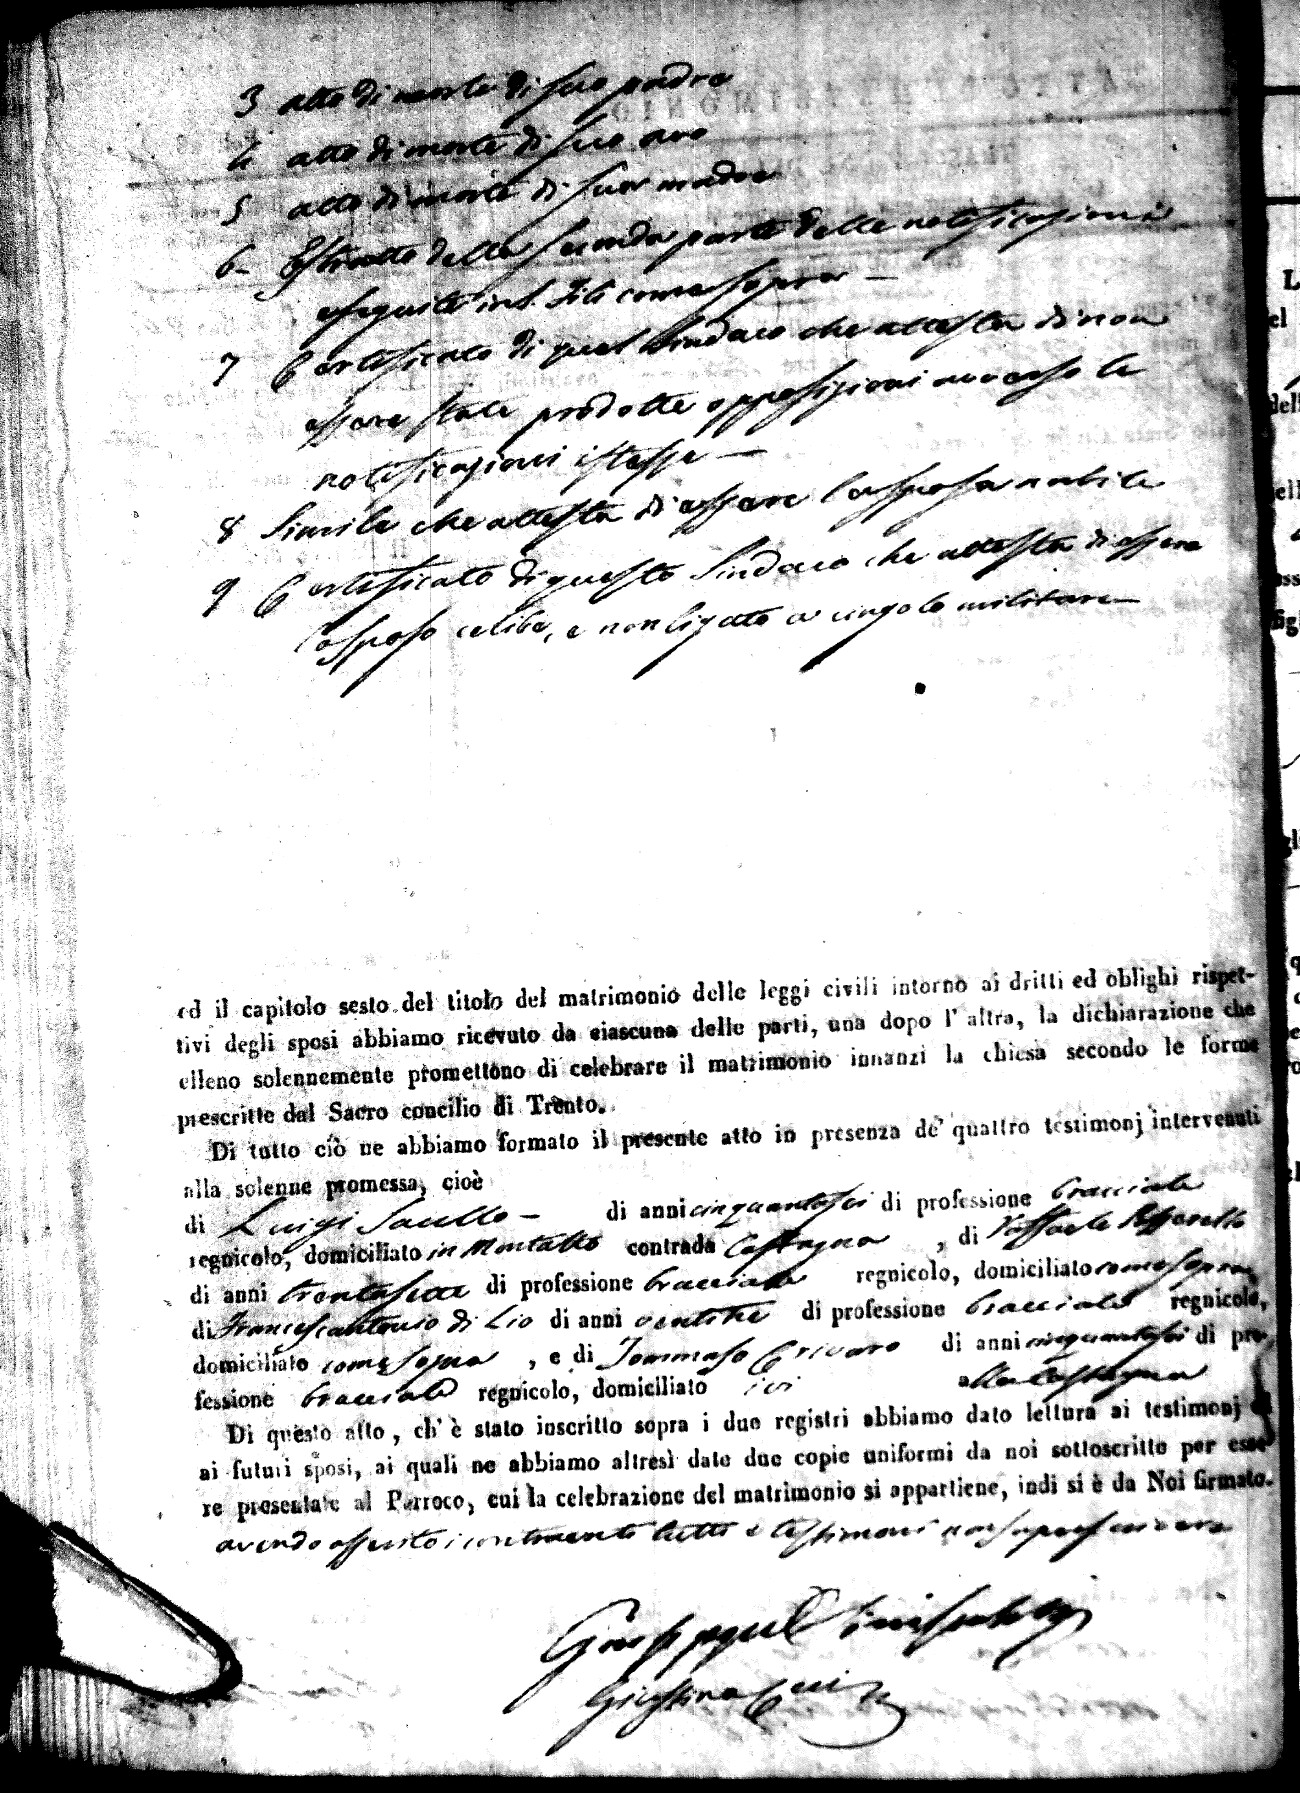 3 atto di morte di suo padre
4 atto di morte di suo avo
5 atto di morte di sua madre
6 Estratto della seconda parte delle notificazioni
eseguite in S. Fili come sopra —
7 Certificato di quel Sindaco che attesta di non
essere state prodotte opposizioni avverso le
notificazioni istesse —
8 Simile che attesta di essere la sposa nubile
9 Certificato di questo Sindaco che attesta di essere
lo sposo celibe, e non ligato a cingolo militare —
ed il capitolo sesto del titolo del matrimonio delle leggi civili intorno ai dritti ed oblighi rispet-
tivi degli sposi abbiamo ricevuto da ciascuna delle parti, una dopo l' altra, la dichiarazione che
elleno solennemente promettono di celebrare il matrimonio innanzi la chiesa secondo le forme
prescritte dal Sacro concilio di Trento.
Di tutto ciò ne abbiamo formato il presente atto in presenza de' quattro testimonj intervenuti
alla solenne promessa, cioè
di Luigi Saullo — di anni cinquantasei di professione bracciale
regnicolo, domiciliato in Montalto contrada Castagna , di Raffaele
di anni trentasette di professione bracciale regnicolo, domiciliato come sopra,
di Francescantonio di Lio di anni ventitre di professione bracciale regnicolo,
domiciliato come sopra , e di Tommaso Crivaro di anni cinquantasei di pro-
fessione bracciale regnicolo, domiciliato ivi alla Castagna
Di questo atto, ch' è stato inscritto sopra i due registri abbiamo dato lettura ai testimonj ed
ai futuri sposi, ai quali ne abbiamo altresì date due copie uniformi da noi sottoscritte per esse-
re presentate al Parroco, cui la celebrazione del matrimonio si appartiene, indi si è da Noi firmato.
avendo asserito i contraenti tutti e testimoni non saper scrivere
Giuseppe
Giustino